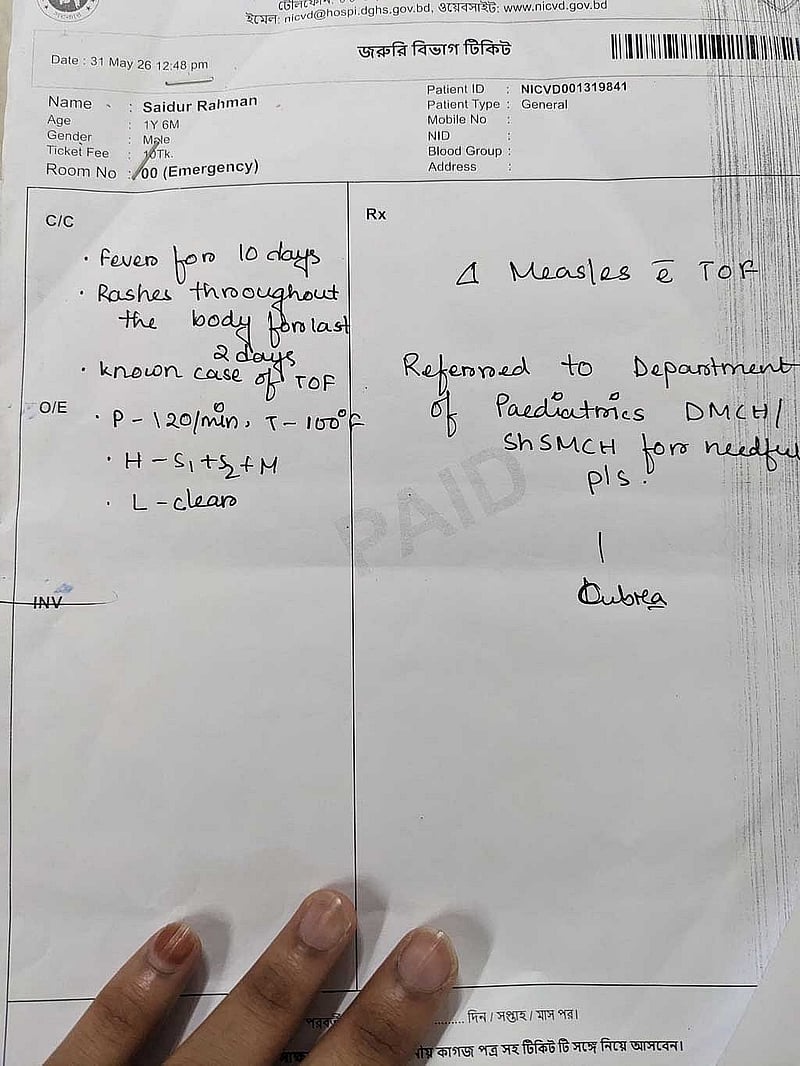 ইমেল: nicvd@hospi.dghs.gov.bd, ওয়েবসাইট: www.nicvd.gov.bd
জরুরি বিভাগ টিকিট
Date : 31 May 26 12:48 pm
Name : Saidur Rahman
Age : 1Y 6M
Gender : Male
Ticket Fee : 10Tk.
Room No : 00 (Emergency)
Patient ID : NICVD001319841
Patient Type : General
Mobile No :
NID :
Blood Group :
Address :
C/C
· Fever for 10 days
· Rashes throughout
the body for last
2 days
· Known case of TOF
O/E
· P - 120/min, T - 100°F
· H - S1 + S2 + M
· L - clear
INV
Rx
Δ Measles c̄ TOF
Referred to Department
of Paediatrics DMCH/
ShSMCH for needful
pls.
PAID
দিন / সপ্তাহ / মাস পর।
কাগজ পত্র সহ টিকিট টি সঙ্গে নিয়ে আসবেন।